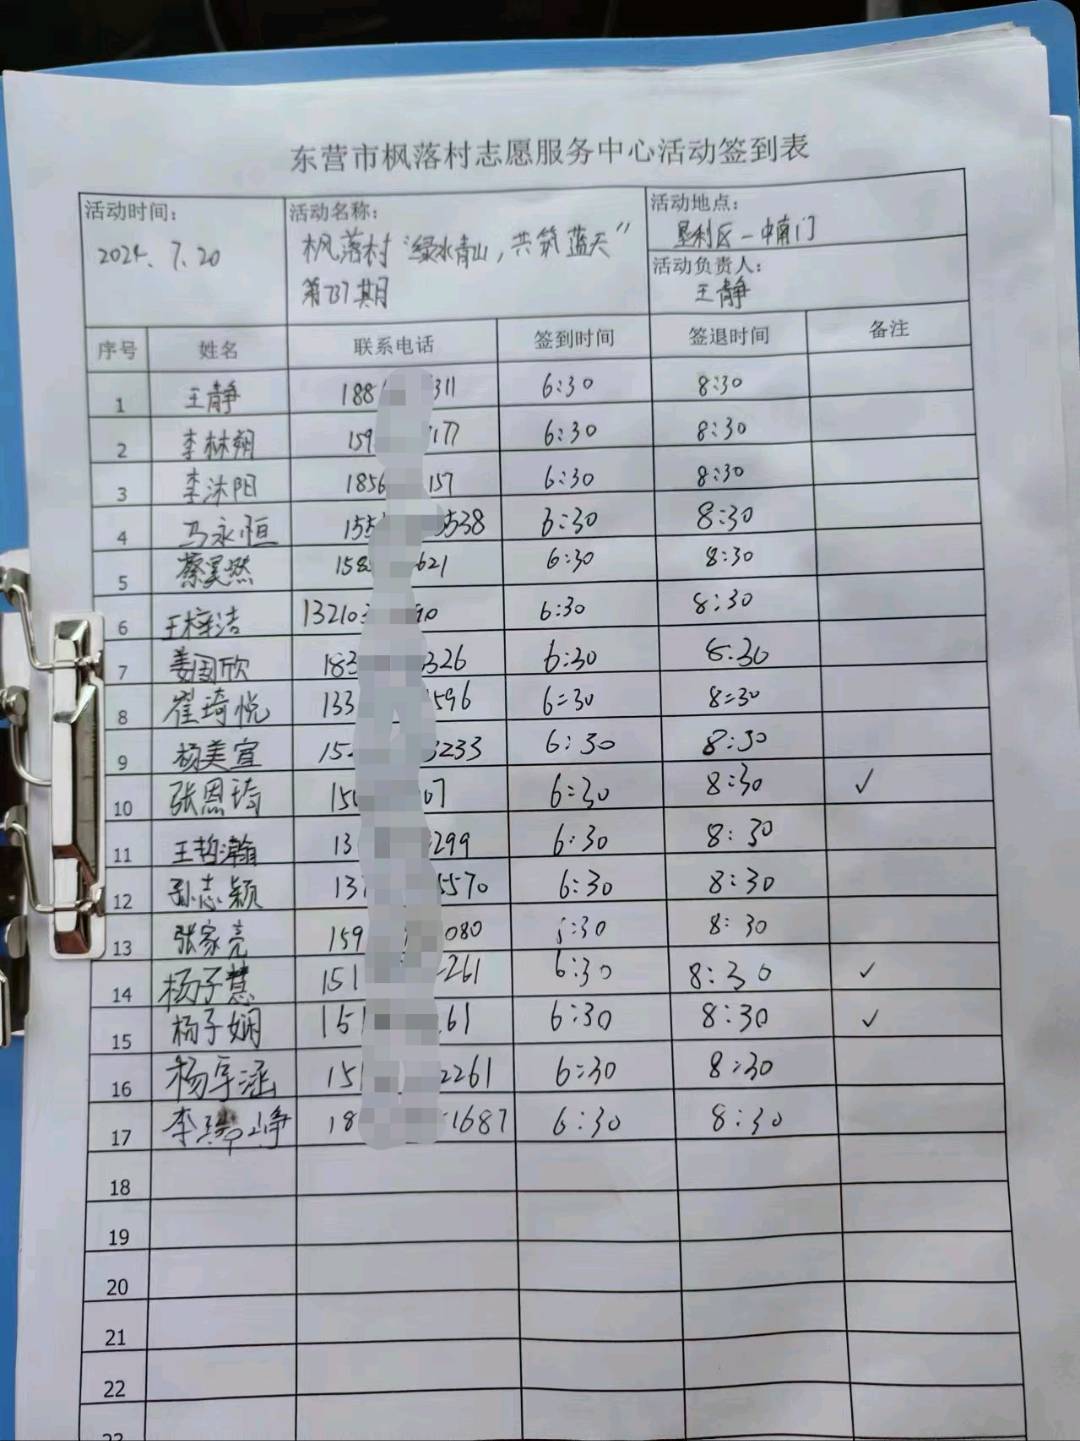 东营市枫落村志愿服务中心活动签到表
活动时间: 活动名称: 活动地点:
2024. 7. 20 枫落村"绿水青山,共筑蓝天" 垦利区一中南门
第737期 活动负责人:
王静
序号 姓名 联系电话 签到时间 签退时间 备注
1 王静 188 311 6:30 8:30
2 李林朔 159 177 6:30 8:30
3 李沐阳 1856 157 6:30 8:30
4 马永恒 155 538 6:30 8:30
5 蔡昊燃 158 621 6:30 8:30
6 王梓洁 13210 90 6:30 8:30
7 姜国欣 183 326 6:30 8:30
8 崔琦悦 133 596 6:30 8:30
9 杨美宣 15 3233 6:30 8:30
10 张恩琦 150 07 6:30 8:30 ✓
11 王哲瀚 13 299 6:30 8:30
12 孙志颖 13 5570 6:30 8:30
13 张家亮 159 080 :30 8:30
14 杨子慧 151 261 6:30 8:30 ✓
15 杨子娴 151 61 6:30 8:30 ✓
16 杨宇涵 151 2261 6:30 8:30
17 李 峥 18 1687 6:30 8:30
18
19
20
21
22